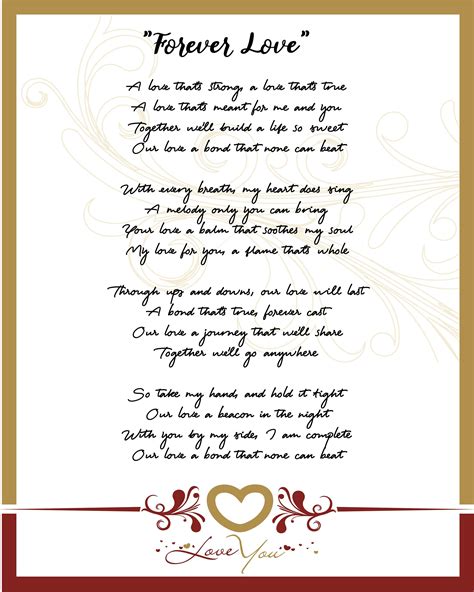 "Forever Love"
A love thats strong, a love thats true
A love thats meant for me and you
Together we'll build a life so sweet
Our love a bond that none can beat
With every breath, my heart does sing
A melody only you can bring
Your love a balm that soothes my soul
My love for you, a flame thats whole
Through ups and downs, our love will last
A bond thats true, forever cast
Our love a journey that we'll share
Together we'll go anywhere
So take my hand, and hold it tight
Our love a beacon in the night
With you by my side, I am complete
Our love a bond that none can beat
Love You